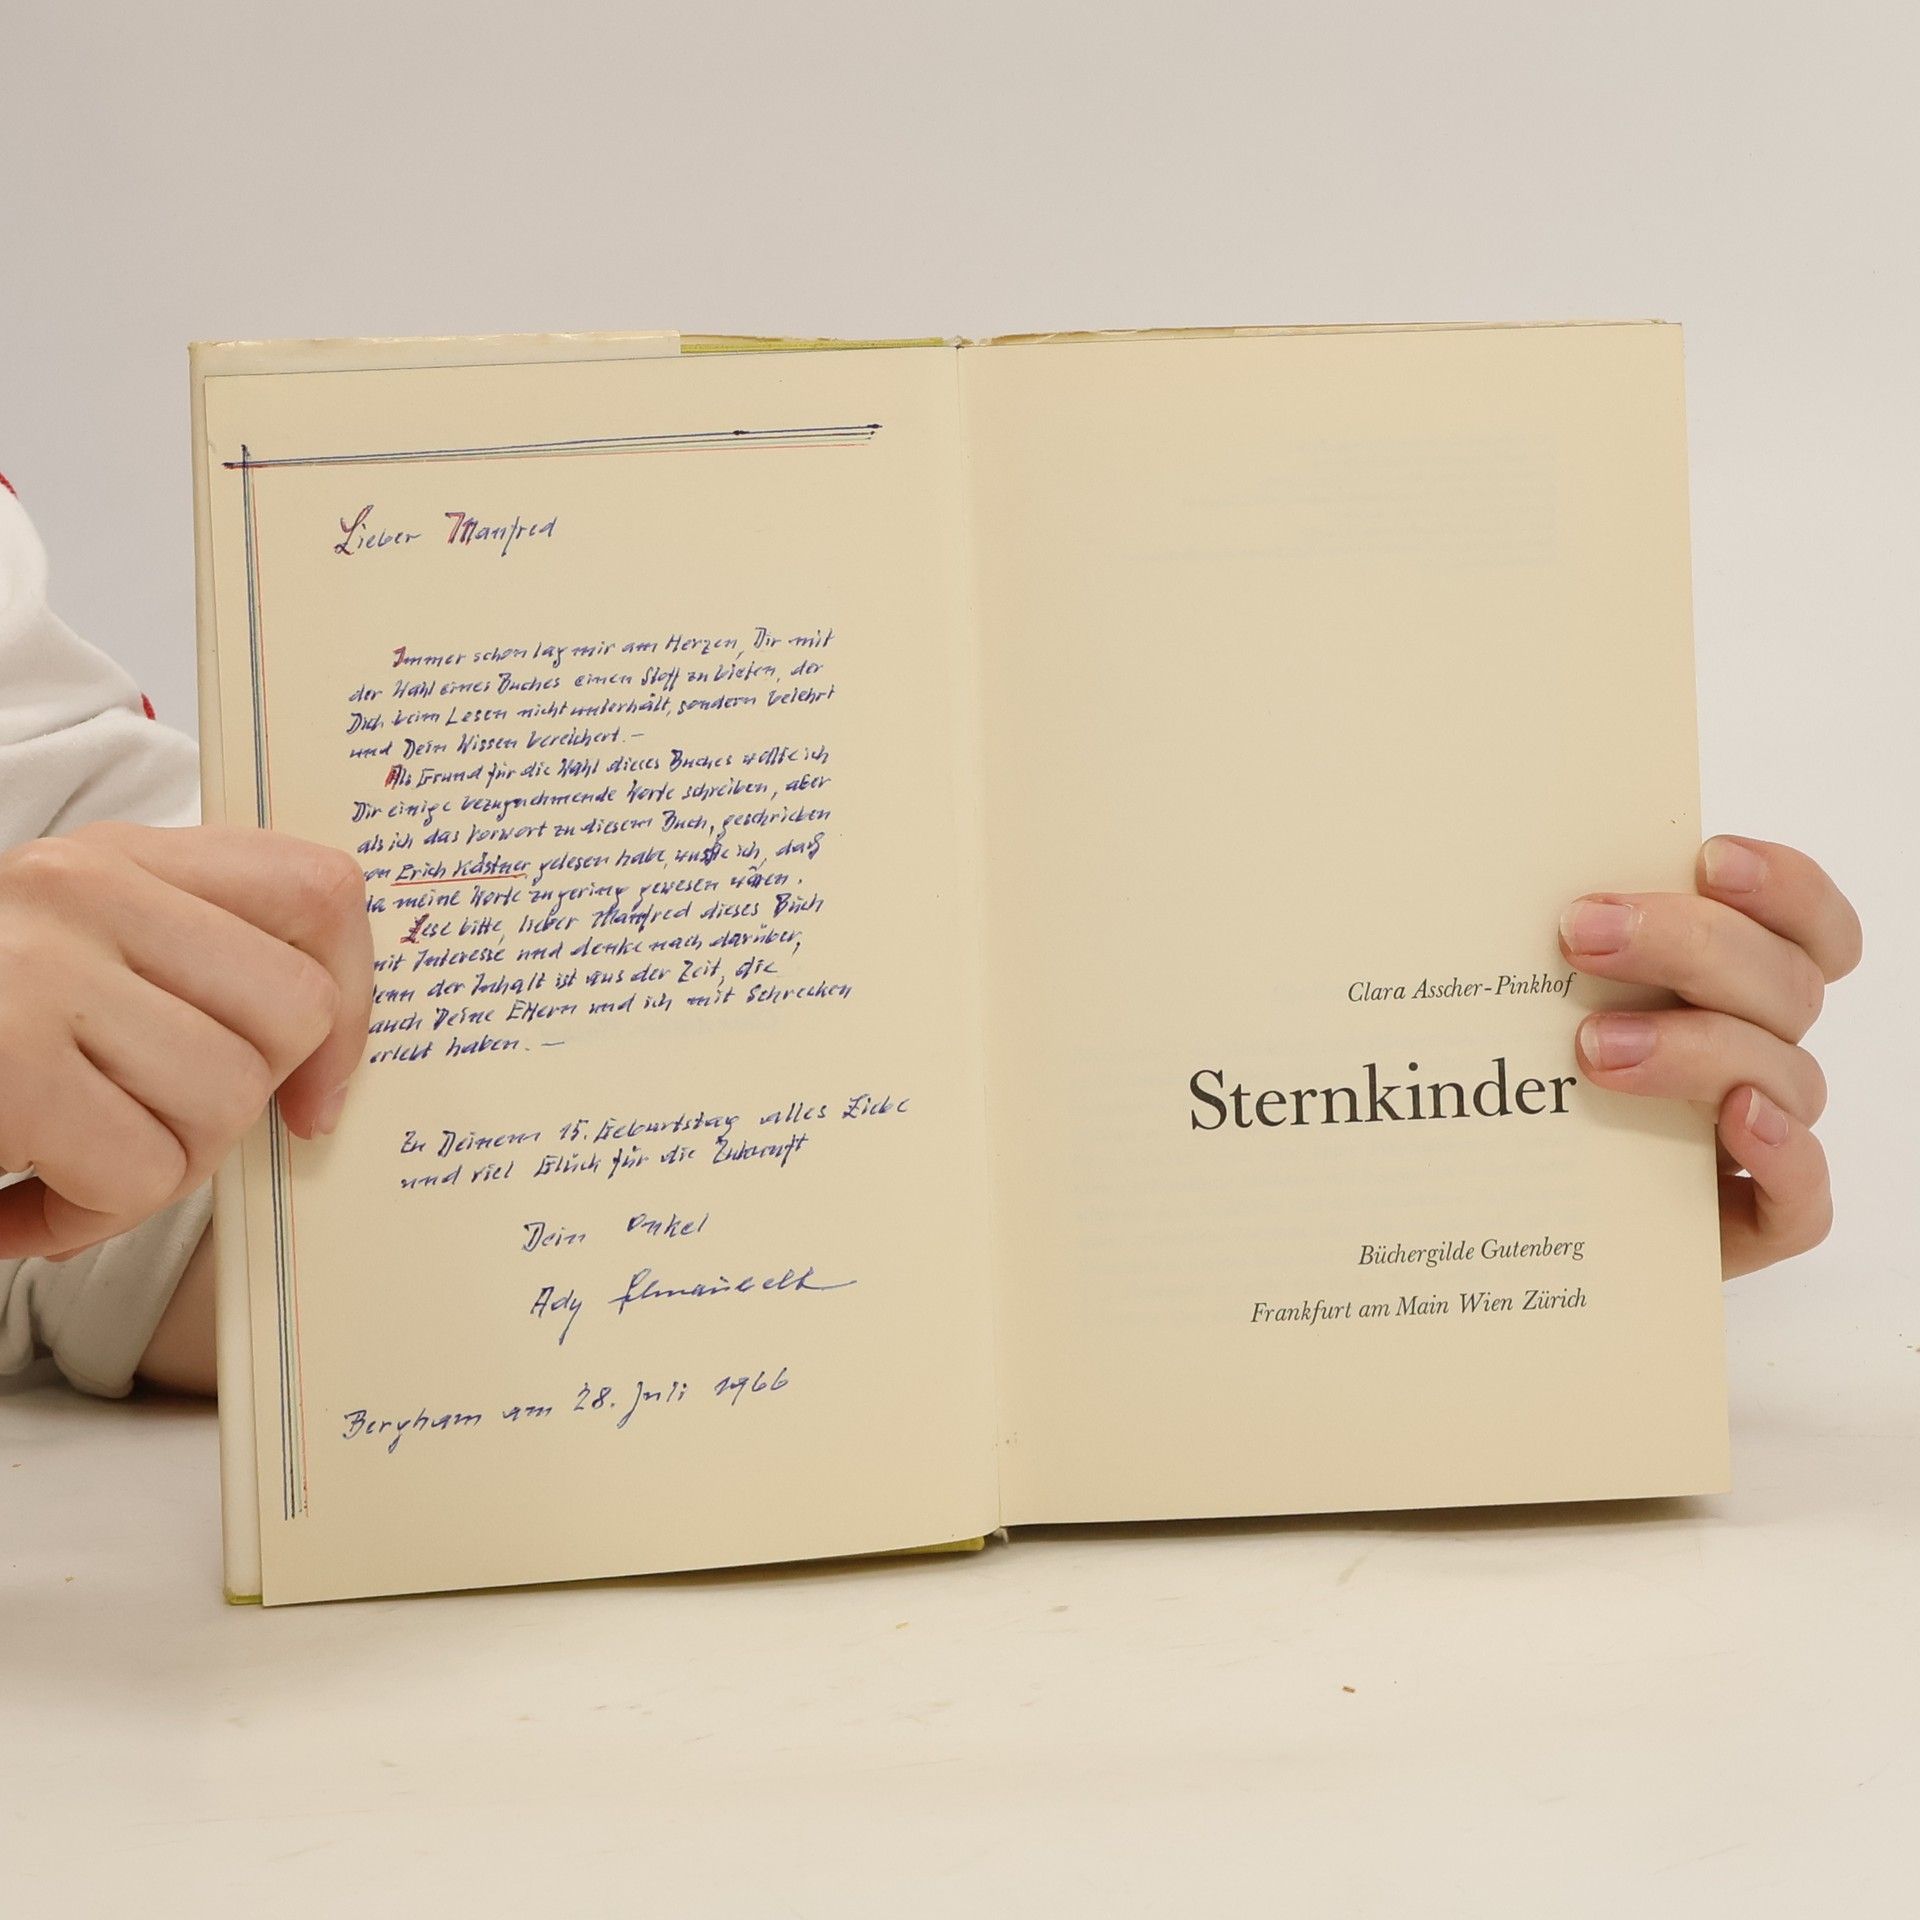 Lieber Manfred
Immer schon lag mir am Herzen, Dir mit
der Wahl eines Buches einen Stoff zu bieten, der
Dich beim Lesen nicht unterhält, sondern belehrt
und Dein Wissen bereichert. —
Als Grund für die Wahl dieses Buches wollte ich
Dir einige bezugnehmende Worte schreiben, aber
als ich das Vorwort zu diesem Buch, geschrieben
von Erich Kästner gelesen habe, wußte ich, daß
da meine Worte zu gering gewesen wären.
Lese bitte, lieber Manfred dieses Buch
mit Interesse und denke nach darüber,
denn der Inhalt ist aus der Zeit, die
auch Deine Eltern und ich mit Schrecken
erlebt haben. —
Zu Deinem 15. Geburtstag alles Liebe
und viel Glück für die Zukunft
Dein Onkel
Ady
Bergham am 28. Juli 1966
Clara Asscher-Pinkhof
Sternkinder
Büchergilde Gutenberg
Frankfurt am Main Wien Zürich